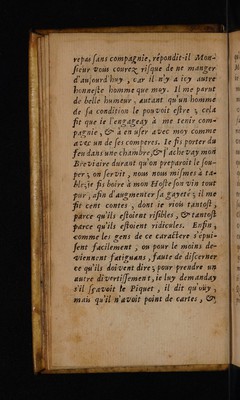 repas sans compagnie, répondit-il Mon-
sieur vous courez risque de ne manger
d'aujourd'huy, car il n'y a icy autre
honneste homme que moy. Il me parut
de belle humeur, autant qu'un homme
de sa condition le pouvoit estre, cela
fit que ie l'engageay à me tenir com-
pagnie, & à en user avec moy comme
avec un de ses comperes. Ie fis porter du
feu dans une chambre, & j'achevay mon
Breviaire durant qu'on preparoit le sou-
per, on servit, nous nous mismes à ta-
ble, ie fis boire à mon Hoste son vin tout
pur, afin d'augmenter sa gayeté; il me
fit cent contes, dont ie riou tantost,
parce qu'ils estoient risibles, & tantost
parce qu'ils estoient ridicules. Enfin,
comme les gens de ce caractere s'épui-
sent facilement, ou pour le moins de-
viennent fatiguans, faute de discerner
ce qu'ils doivent dire; pour prendre un
autre divertissement, ie luy demanday
s'il sçavoit le Piquet, il dit qu'oüy,
mais qu'il n'avoit point de cartes, &